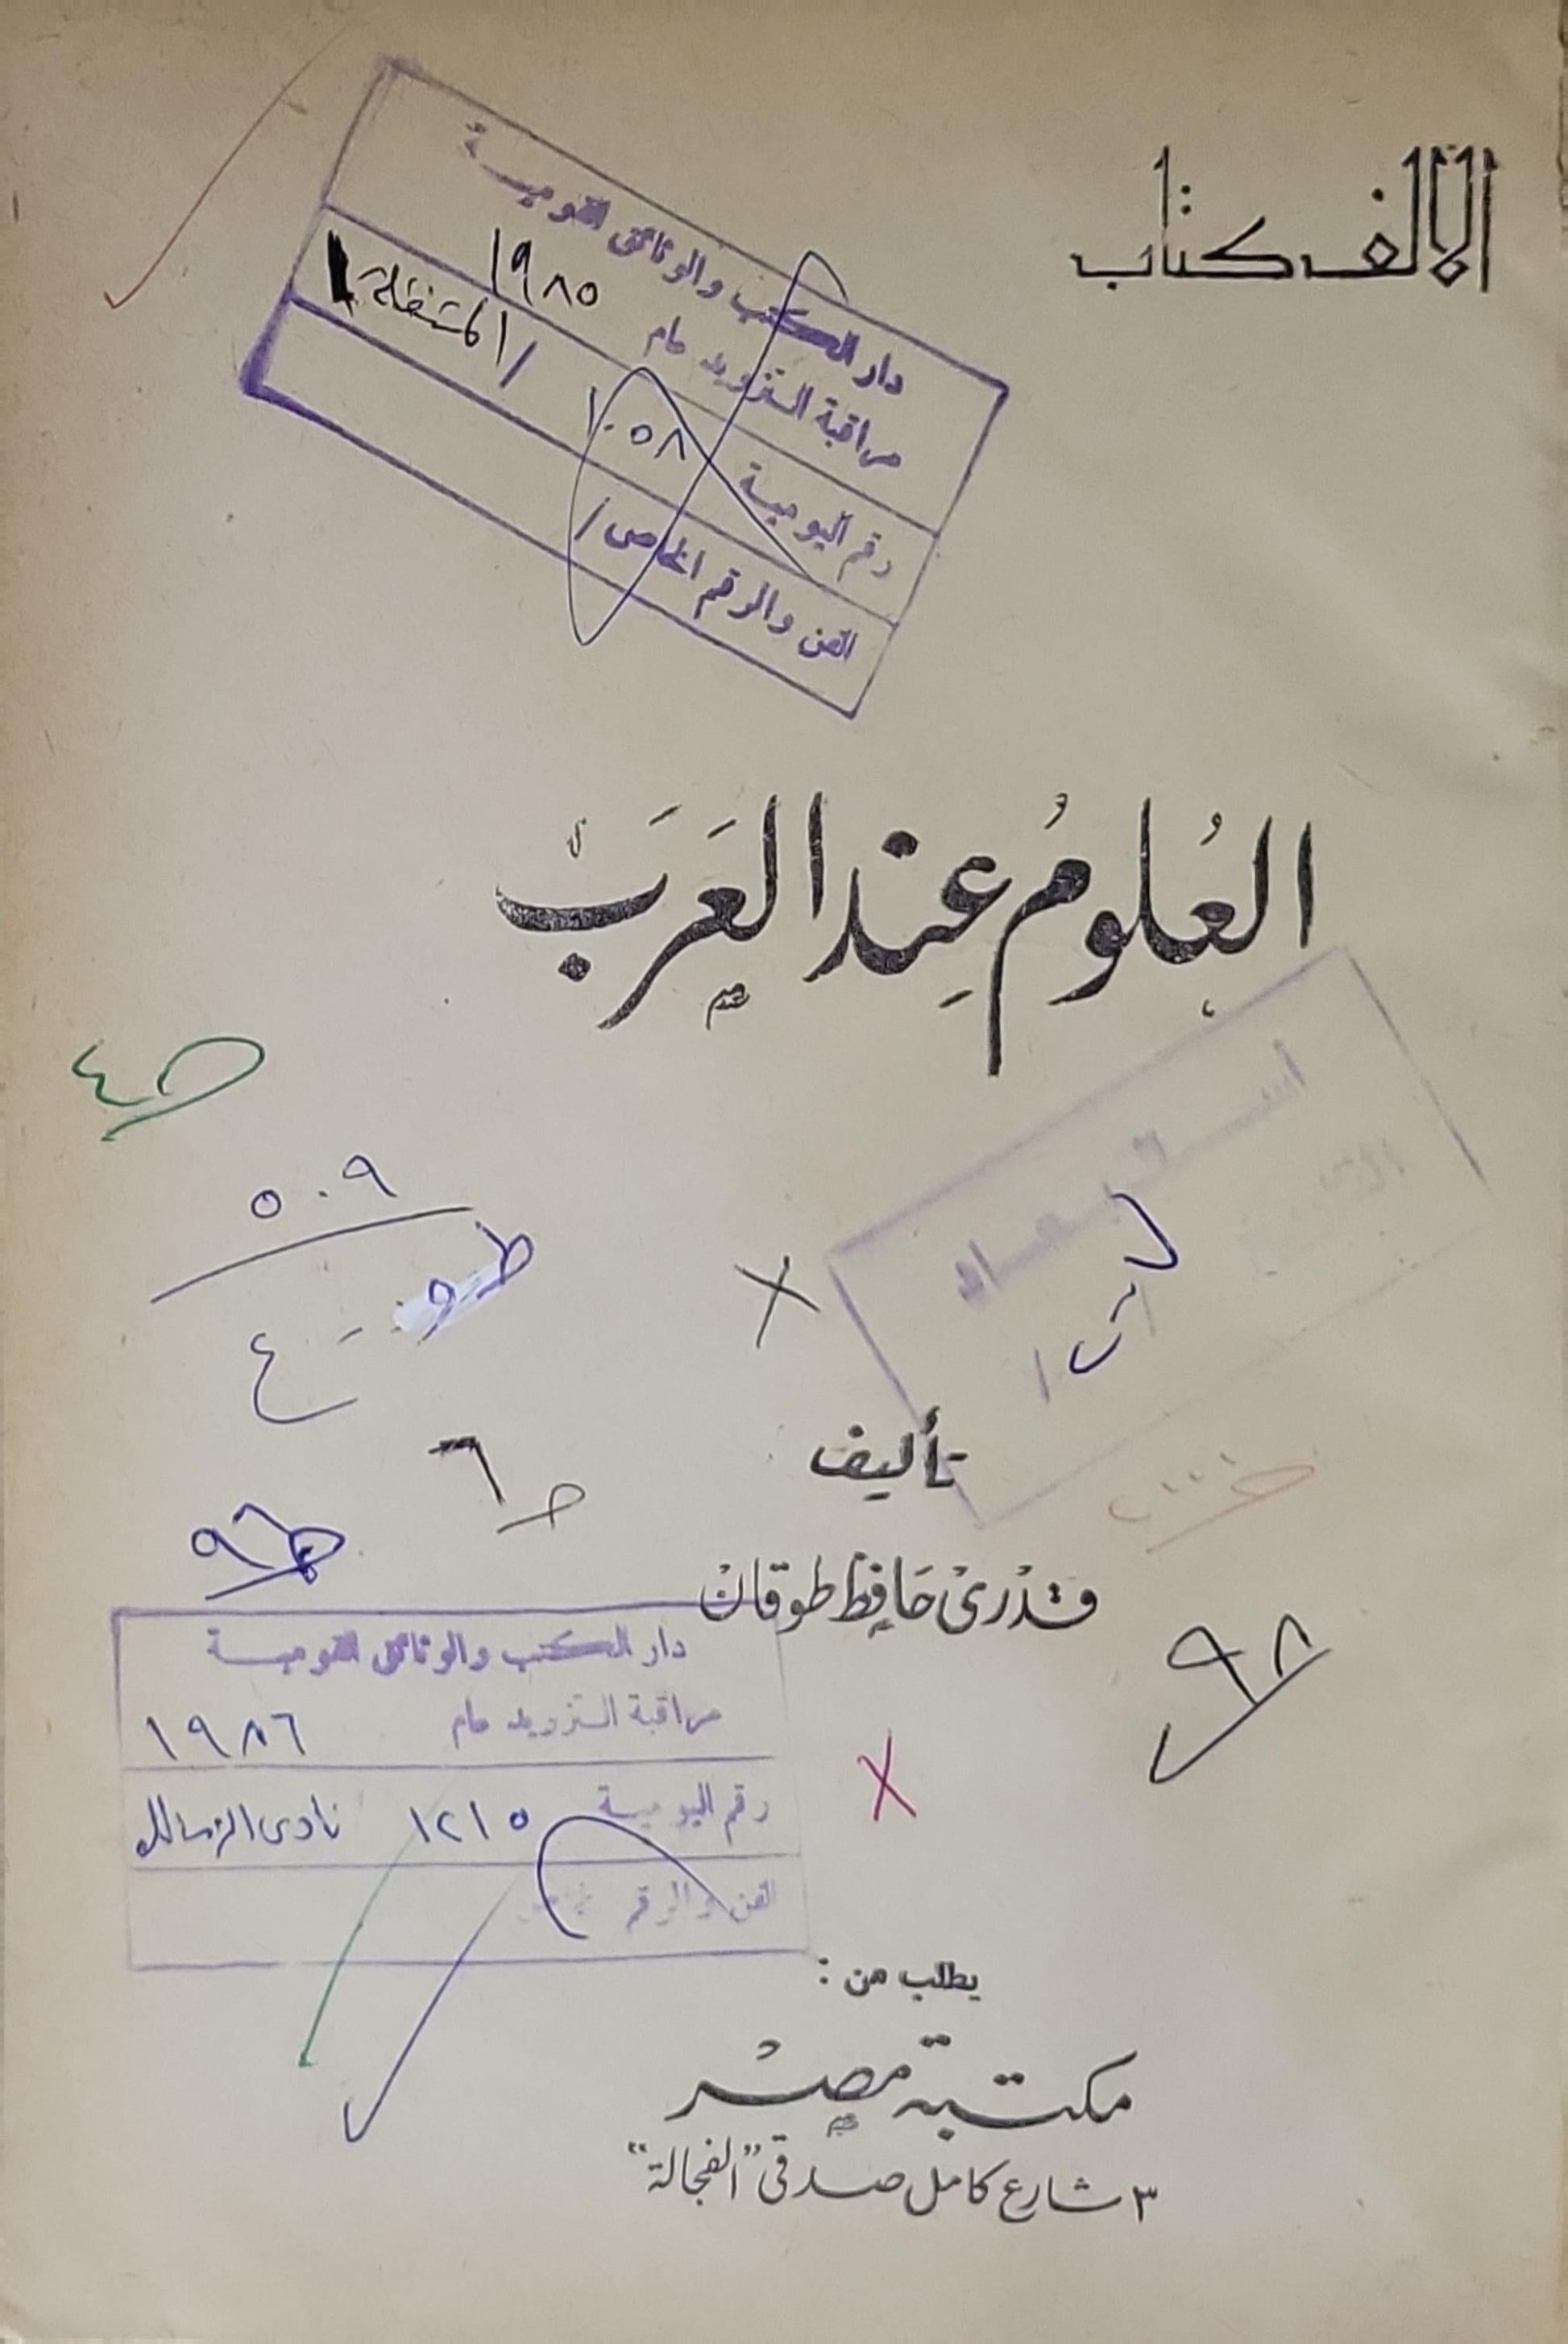 الألف كتاب
دار الكتب والوثائق القومية
مراقبة التزويد عام ١٩٨٥
رقم اليومية ١٠٥٨ / المتنقلة
الفن والرقم الخاص /
العُلومُ عِند العَرَبْ
٥٠٩
ط
ع
تأليف
قدرى حَافِظ طوقان
٩٨
دار الكتب والوثائق القومية
مراقبة التزويد عام ١٩٨٦
رقم اليومية ١٢١٥ نادى الزمالك
الفن والرقم
يطلب من :
مكتبة مصر
٣ شارع كامل صدقى "الفجالة"